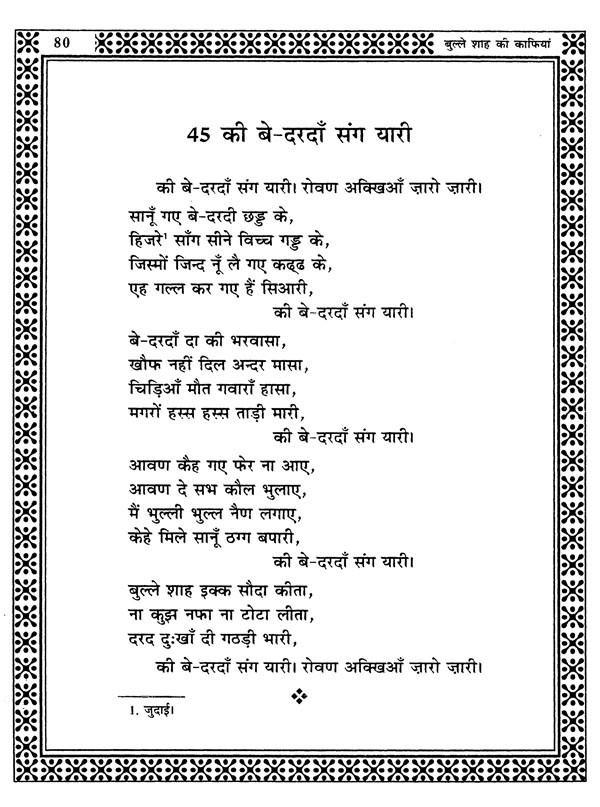 80
बुल्ले शाह की काफियां
45 की बे-दरदाँ संग यारी
की बे-दरदाँ संग यारी। रोवण अक्खिआँ ज़ारो ज़ारी।
सानूँ गए बे-दरदी छड्ड के,
हिजरे¹ साँग सीने विच्च गड्ड के,
जिस्मों जिन्द नूँ लै गए कढ्ढ के,
एह गल्ल कर गए हैं सिआरी,
की बे-दरदाँ संग यारी।
बे-दरदाँ दा की भरवासा,
खौफ नहीं दिल अन्दर मासा,
चिड़िआँ मौत गवाराँ हासा,
मगरों हस्स हस्स ताड़ी मारी,
की बे-दरदाँ संग यारी।
आवण कैह गए फेर ना आए,
आवण दे सभ कौल भुलाए,
मैं भुल्ली भुल्ल नैण लगाए,
केहे मिले सानूँ ठग्ग बपारी,
की बे-दरदाँ संग यारी।
बुल्ले शाह इक्क सौदा कीता,
ना कुझ नफा ना टोटा लीता,
दरद दुःखाँ दी गठड़ी भारी,
की बे-दरदाँ संग यारी। रोवण अक्खिआँ ज़ारो ज़ारी।
1. जुदाई।